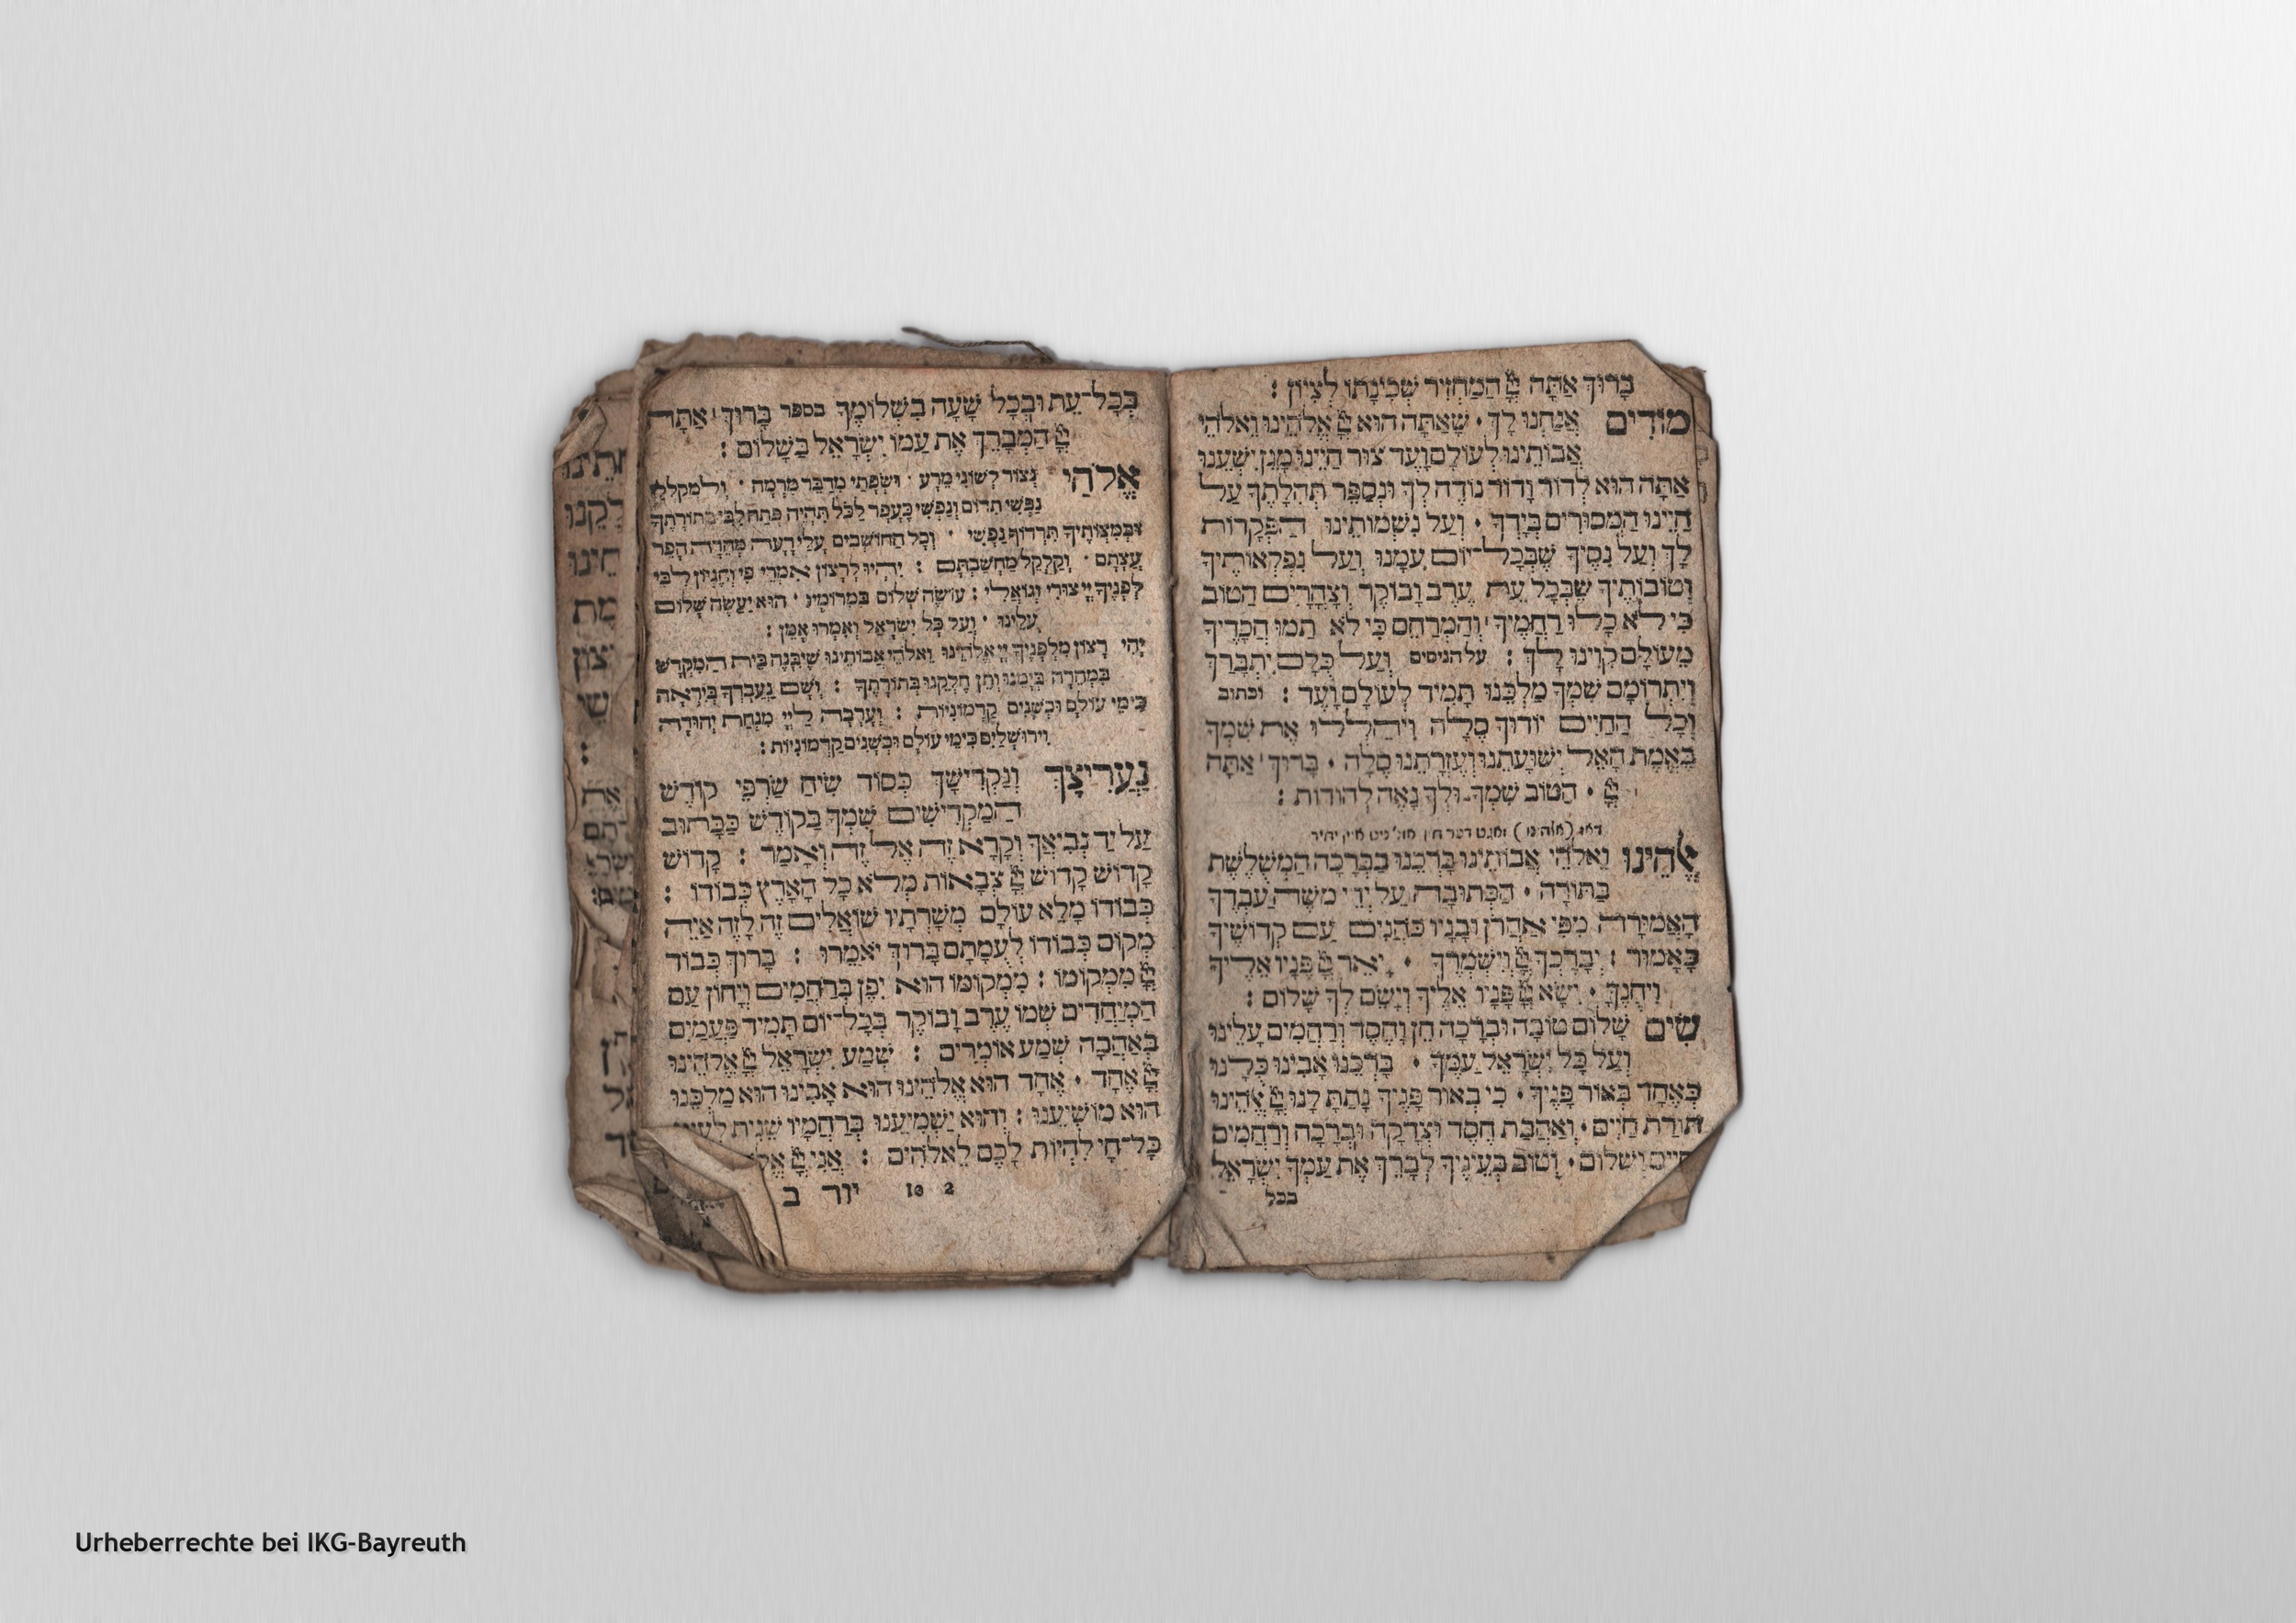 בָּרוּךְ אַתָּה יְיָ הַמַּחֲזִיר שְׁכִינָתוֹ לְצִיּוֹן :
מוֹדִים אֲנַחְנוּ לָךְ · שָׁאַתָּה הוּא יְיָ אֱלֹהֵינוּ וֵאלֹהֵי
אֲבוֹתֵינוּ לְעוֹלָם וָעֶד צוּר חַיֵּינוּ מָגֵן יִשְׁעֵנוּ
אַתָּה הוּא לְדוֹר וָדוֹר נוֹדֶה לְךָ וּנְסַפֵּר תְּהִלָּתֶךָ עַל
חַיֵּינוּ הַמְּסוּרִים בְּיָדֶךָ · וְעַל נִשְׁמוֹתֵינוּ הַפְּקֻדוֹת
לָךְ וְעַל נִסֶּיךָ שֶׁבְּכָל־יוֹם עִמָּנוּ וְעַל נִפְלְאוֹתֶיךָ
וְטוֹבוֹתֶיךָ שֶׁבְּכָל עֵת עֶרֶב וָבוֹקֶר וְצָהֳרָיִם הַטּוֹב
כִּי לֹא כָלוּ רַחֲמֶיךָ וְהַמְרַחֵם כִּי לֹא תַמּוּ חֲסָדֶיךָ
מֵעוֹלָם קִוִּינוּ לָךְ : על הניסים וְעַל כֻּלָּם יִתְבָּרַךְ
וְיִתְרוֹמָם שִׁמְךָ מַלְכֵּנוּ תָּמִיד לְעוֹלָם וָעֶד : וכתוב
וְכָל הַחַיִּים יוֹדוּךָ סֶּלָה וִיהַלְלוּ אֶת שִׁמְךָ
בֶּאֱמֶת הָאֵל יְשׁוּעָתֵנוּ וְעֶזְרָתֵנוּ סֶלָה · בָּרוּךְ אַתָּה
יְיָ · הַטּוֹב שִׁמְךָ וּלְךָ נָאֶה לְהוֹדוֹת :
אֱלֹהֵינוּ וֵאלֹהֵי אֲבוֹתֵינוּ בָּרְכֵנוּ בַבְּרָכָה הַמְשֻׁלֶּשֶׁת
בַּתּוֹרָה · הַכְּתוּבָה עַל יְדֵי משֶׁה עַבְדֶּךָ
הָאֲמוּרָה מִפִּי אַהֲרֹן וּבָנָיו כֹּהֲנִים עַם קְדוֹשֶׁיךָ
כָּאָמוּר : יְבָרֶכְךָ יְיָ וְיִשְׁמְרֶךָ · יָאֵר יְיָ פָּנָיו אֵלֶיךָ
וִיחֻנֶּךָּ · יִשָּׂא יְיָ פָּנָיו אֵלֶיךָ וְיָשֵׂם לְךָ שָׁלוֹם :
שִׂים שָׁלוֹם טוֹבָה וּבְרָכָה חֵן וָחֶסֶד וְרַחֲמִים עָלֵינוּ
וְעַל כָּל יִשְׂרָאֵל עַמֶּךָ · בָּרְכֵנוּ אָבִינוּ כֻּלָּנוּ
כְּאֶחָד בְּאוֹר פָּנֶיךָ · כִּי בְאוֹר פָּנֶיךָ נָתַתָּ לָּנוּ יְיָ אֱלֹהֵינוּ
תּוֹרַת חַיִּים · וְאַהֲבַת חֶסֶד וּצְדָקָה וּבְרָכָה וְרַחֲמִים
חַיִּים וְשָׁלוֹם · וְטוֹב בְּעֵינֶיךָ לְבָרֵךְ אֶת עַמְּךָ יִשְׂרָאֵל
בכל
בְּכָל־עֵת וּבְכָל שָׁעָה בִּשְׁלוֹמֶךָ בספר בָּרוּךְ אַתָּה
יְיָ הַמְבָרֵךְ אֶת עַמּוֹ יִשְׂרָאֵל בַּשָּׁלוֹם :
אֱלֹהַי נְצוֹר לְשׁוֹנִי מֵרָע · וּשְׂפָתַי מִדַּבֵּר מִרְמָה · וְלִמְקַלְלַי
נַפְשִׁי תִדּוֹם וְנַפְשִׁי כֶּעָפָר לַכֹּל תִּהְיֶה פְּתַח לִבִּי בְּתוֹרָתֶךָ
וּבְמִצְוֹתֶיךָ תִּרְדּוֹף נַפְשִׁי · וְכָל הַחוֹשְׁבִים עָלַי רָעָה מְהֵרָה הָפֵר
עֲצָתָם · וְקַלְקֵל מַחֲשַׁבְתָּם : יִהְיוּ לְרָצוֹן אִמְרֵי פִי וְהֶגְיוֹן לִבִּי
לְפָנֶיךָ יְיָ צוּרִי וְגוֹאֲלִי : עוֹשֶׂה שָׁלוֹם בִּמְרוֹמָיו · הוּא יַעֲשֶׂה שָׁלוֹם
עָלֵינוּ · וְעַל כָּל יִשְׂרָאֵל וְאִמְרוּ אָמֵן :
יְהִי רָצוֹן מִלְּפָנֶיךָ יְיָ אֱלֹהֵינוּ וֵאלֹהֵי אֲבוֹתֵינוּ שֶׁיִּבָּנֶה בֵּית הַמִּקְדָּשׁ
בִּמְהֵרָה בְיָמֵינוּ וְתֵן חֶלְקֵנוּ בְּתוֹרָתֶךָ : וְשָׁם נַעֲבָדְךָ בְּיִרְאָה
כִּימֵי עוֹלָם וּכְשָׁנִים קַדְמוֹנִיּוֹת : וְעָרְבָה לַיְיָ מִנְחַת יְהוּדָה
וִירוּשָׁלָיִם כִּימֵי עוֹלָם וּכְשָׁנִים קַדְמוֹנִיּוֹת :
נַעֲרִיצָךְ וְנַקְדִּישָׁךְ כְּסוֹד שִׂיחַ שַׂרְפֵי קוֹדֶשׁ
הַמַּקְדִּישִׁים שִׁמְךָ בַּקּוֹדֶשׁ כַּכָּתוּב
עַל יַד נְבִיאָךְ וְקָרָא זֶה אֶל זֶה וְאָמַר : קָדוֹשׁ
קָדוֹשׁ קָדוֹשׁ יְיָ צְבָאוֹת מְלֹא כָל הָאָרֶץ כְּבוֹדוֹ :
כְּבוֹדוֹ מָלֵא עוֹלָם מְשָׁרְתָיו שׁוֹאֲלִים זֶה לָזֶה אַיֵּה
מְקוֹם כְּבוֹדוֹ לְעֻמָּתָם בָּרוּךְ יֹאמֵרוּ : בָּרוּךְ כְּבוֹד
יְיָ מִמְּקוֹמוֹ : מִמְּקוֹמוֹ הוּא יִפֶן בְּרַחֲמִים וְיָחוֹן עַם
הַמְיַחֲדִים שְׁמוֹ עֶרֶב וָבוֹקֶר בְּכָל־יוֹם תָּמִיד פַּעֲמַיִם
בְּאַהֲבָה שְׁמַע אוֹמְרִים : שְׁמַע יִשְׂרָאֵל יְיָ אֱלֹהֵינוּ
יְיָ אֶחָד · אֶחָד הוּא אֱלֹהֵינוּ הוּא אָבִינוּ הוּא מַלְכֵּנוּ
הוּא מוֹשִׁיעֵנוּ : וְהוּא יַשְׁמִיעֵנוּ בְּרַחֲמָיו שֵׁנִית לְעֵינֵי
כָּל־חַי לִהְיוֹת לָכֶם לֵאלֹהִים : אֲנִי יְיָ
10 2 יור ב
Urheberrechte bei IKG-Bayreuth